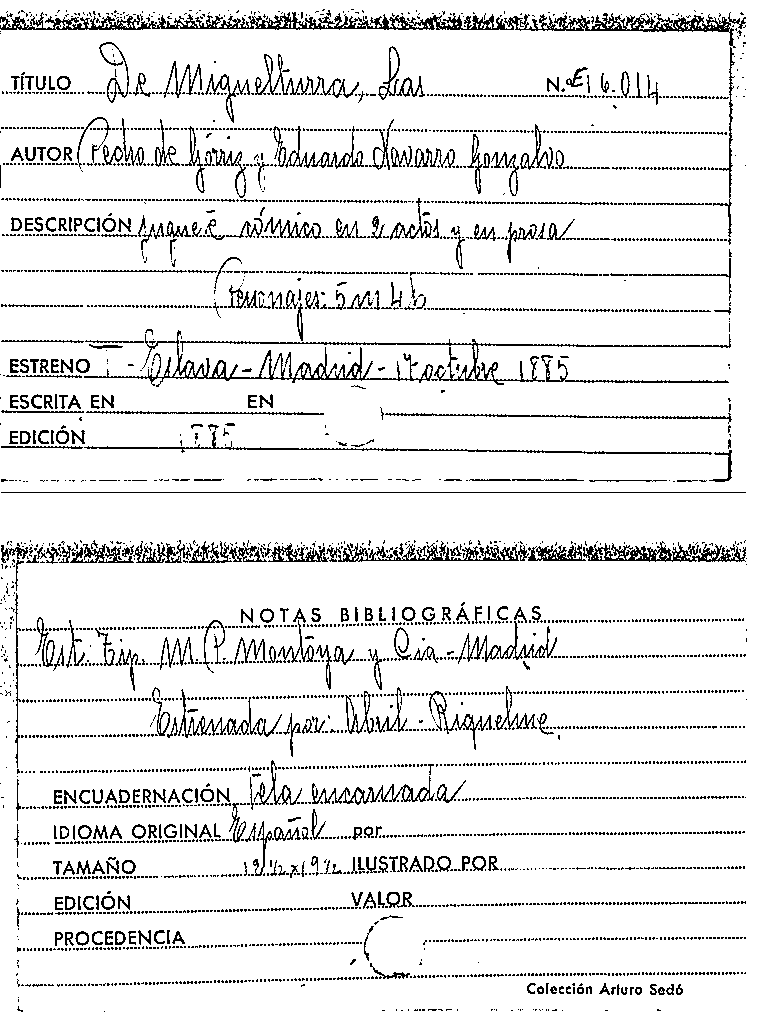 TÍTULO De Miguelturra, Las N.º E 16.014
AUTOR Pedro de Górriz y Eduardo Navarro Gonzalvo
DESCRIPCIÓN juguete cómico en 2 actos y en prosa
Personajes: 5 m 4 h
ESTRENO T- Eslava - Madrid - 17 octubre 1885
ESCRITA EN EN
EDICIÓN 1885
NOTAS BIBLIOGRÁFICAS
Est. Tip. M. P. Montoya y Cia - Madrid
Estrenada por: Abril - Riquelme.
ENCUADERNACIÓN Tela encarnada
IDIOMA ORIGINAL Español por
TAMAÑO 13 1/2 x 19 1/2 ILUSTRADO POR
EDICIÓN VALOR
PROCEDENCIA
Colección Arturo Sedó